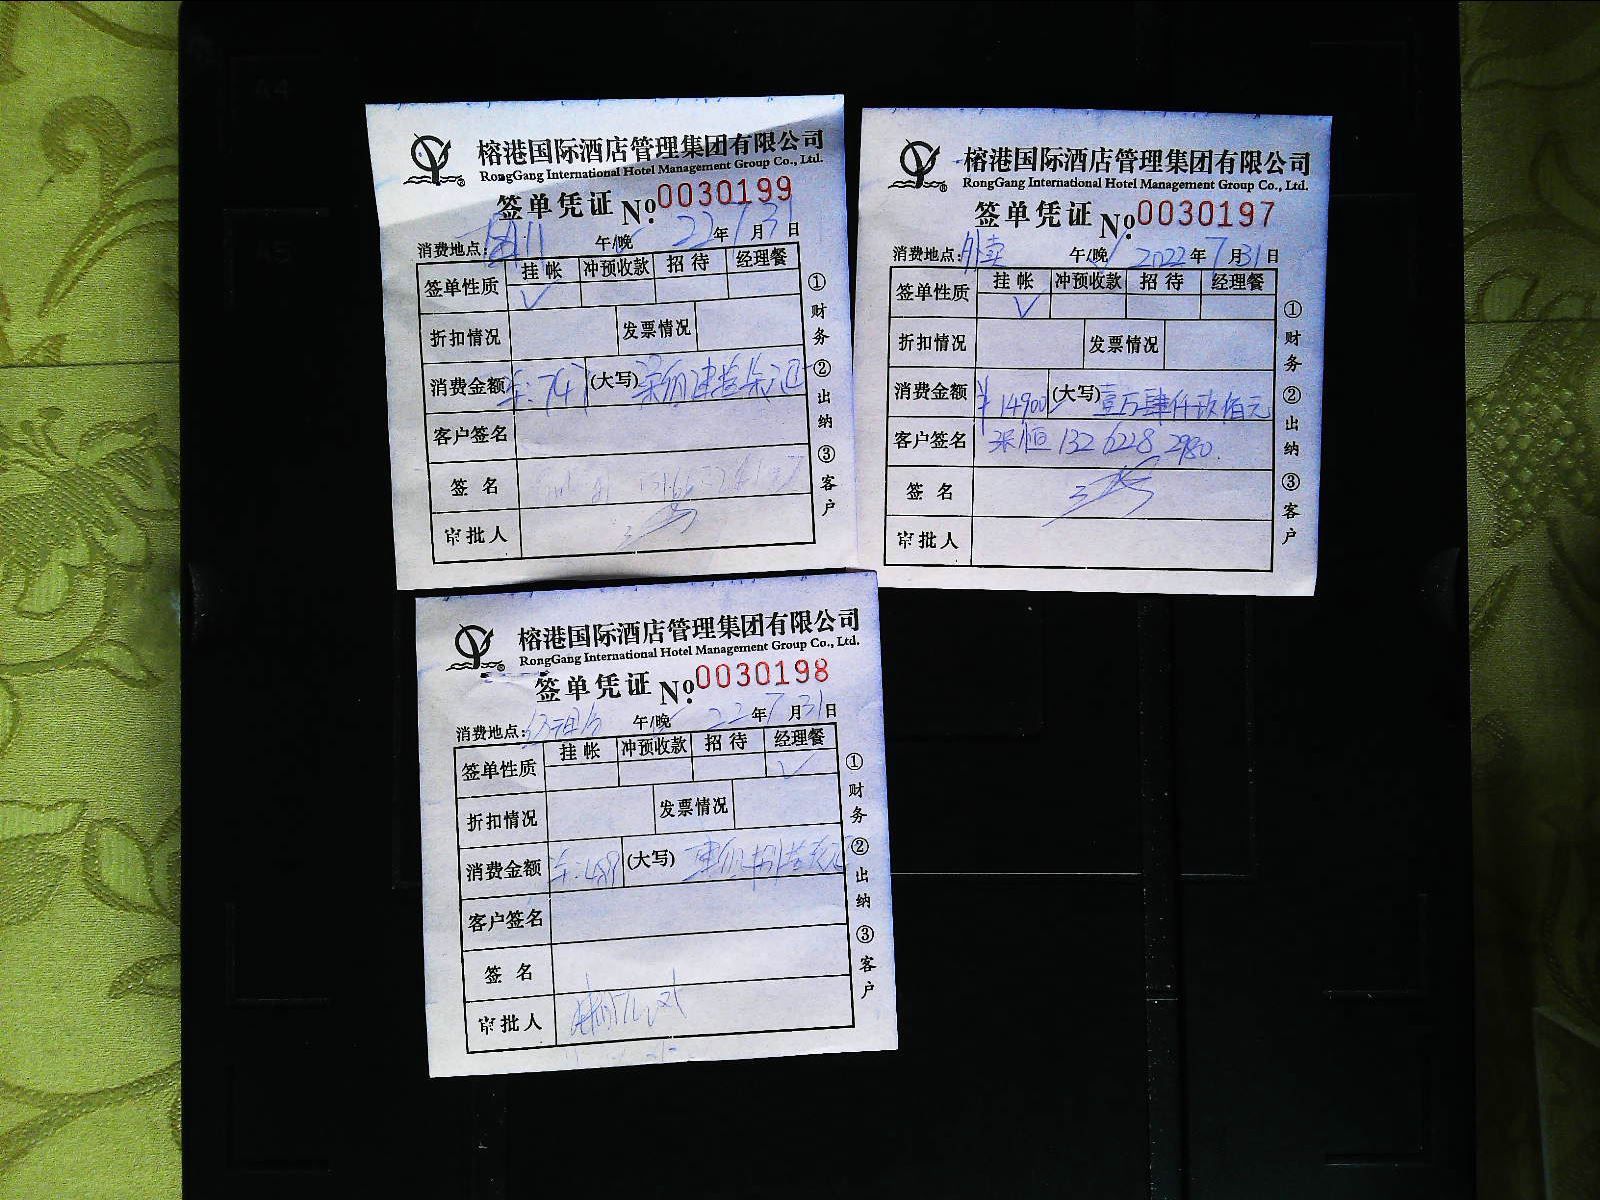 榕港国际酒店管理集团有限公司
RongGang International Hotel Management Group Co., Ltd.
签单凭证 No. 0030199
消费地点: 午/晚 22年7月31日
签单性质 挂帐 冲预收款 招待 经理餐
折扣情况 发票情况
消费金额 (大写)
客户签名
签名
审批人
①财务 ②出纳 ③客户
榕港国际酒店管理集团有限公司
RongGang International Hotel Management Group Co., Ltd.
签单凭证 No. 0030197
消费地点: 外卖 午/晚 2022年7月31日
签单性质 挂帐 冲预收款 招待 经理餐
折扣情况 发票情况
消费金额 ¥14900 (大写) 壹万肆仟玖佰元
客户签名 张恒 132 6228 2980
签名
审批人
①财务 ②出纳 ③客户
榕港国际酒店管理集团有限公司
RongGang International Hotel Management Group Co., Ltd.
签单凭证 No. 0030198
消费地点: 午/晚 22年7月31日
签单性质 挂帐 冲预收款 招待 经理餐
折扣情况 发票情况
消费金额 (大写)
客户签名
签名
审批人
①财务 ②出纳 ③客户